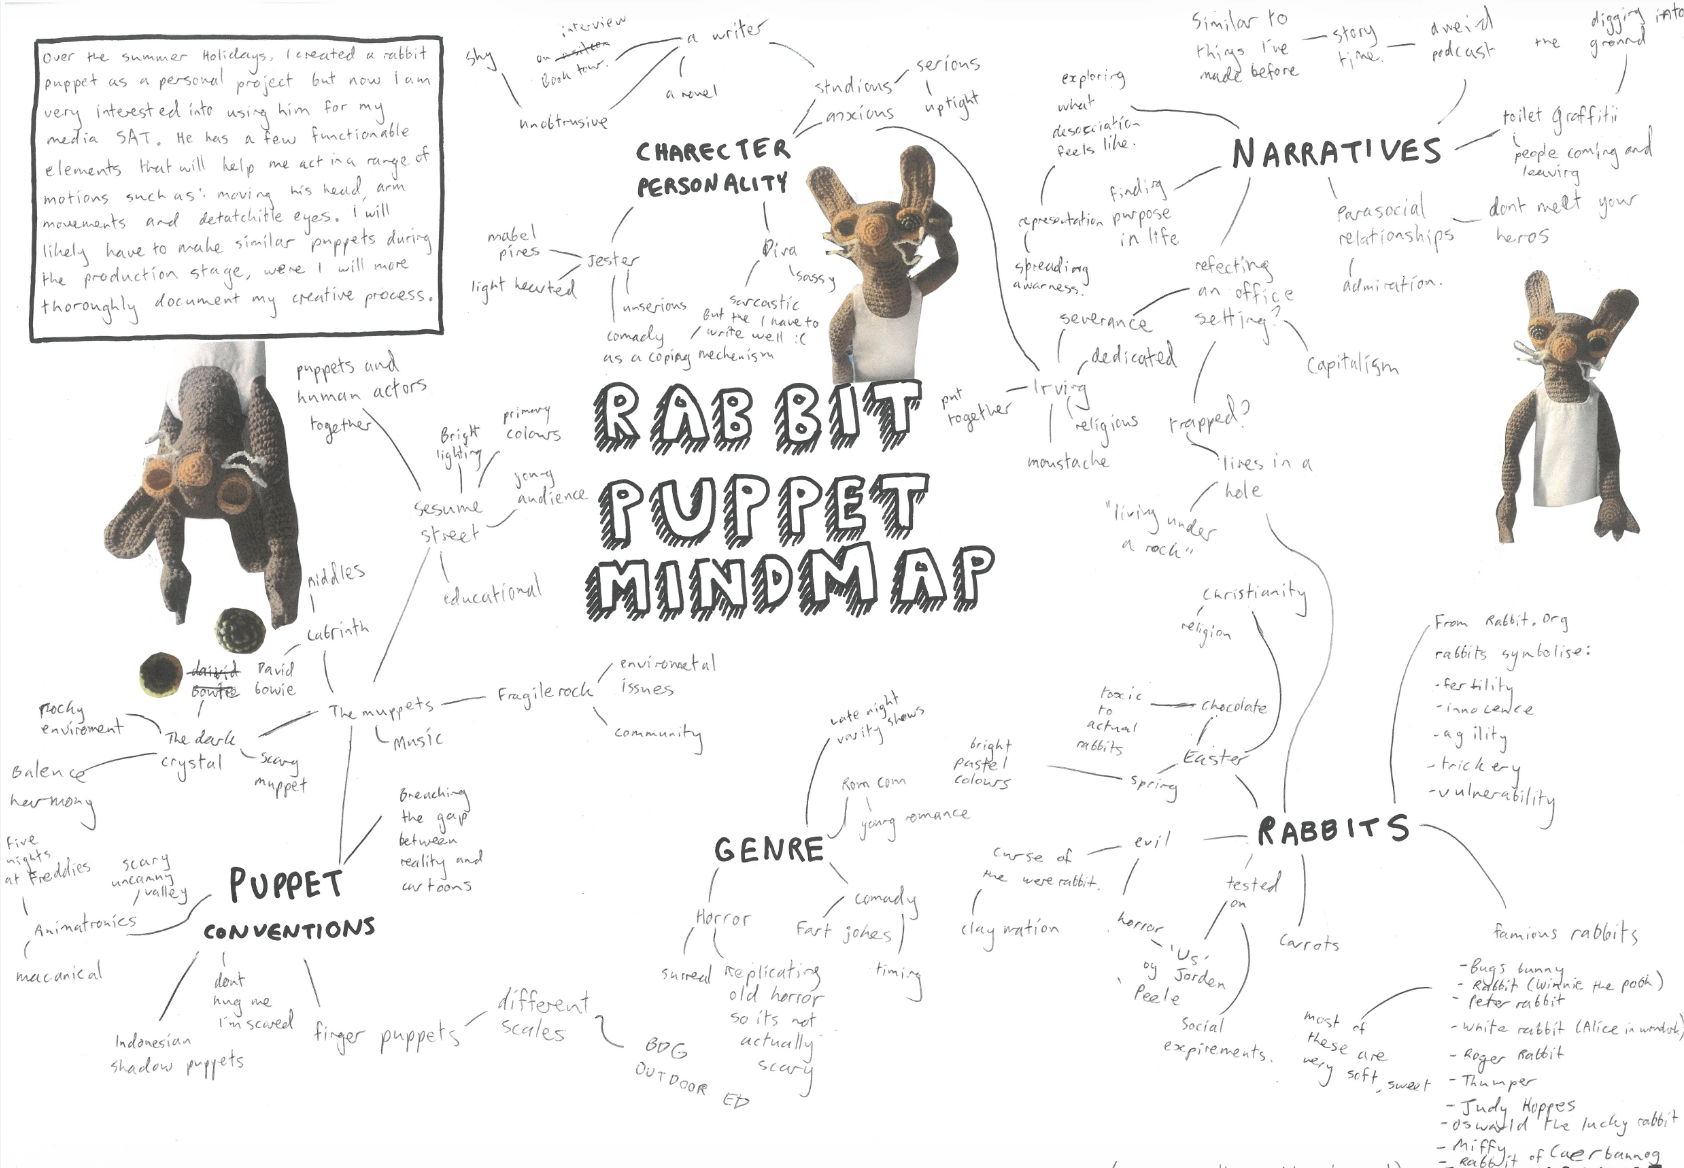 Over the summer Holidays, I created a rabbit
puppet as a personal project but now I am
very interested into using him for my
media SAT. He has a few functionable
elements that will help me act in a range of
motions such as: moving his head, arm
movements and detatchitle eyes. I will
likely have to make similar puppets during
the production stage, were I will more
thoroughly document my creative process.
RABBIT
PUPPET
MINDMAP
CHARECTER
PERSONALITY
a writer
interview
on
Book tour.
a novel
shy
unobtrusive
studious
anxious
serious
uptight
Jester
mabel
pires
light hearted
unserious
comady
as a coping mechenism
Diva
sassy
sarcastic
But the I have to
write well :(
NARRATIVES
exploring
what
desociation
feels like.
representation
spreading
awarness.
finding
purpose
in life
Similar to
things I've
made before
story
time.
a weird
podcast
toilet graffitii
people coming and
leaving
digging into
the ground
Parasocial
relationships
dont meet your
heros
admiration.
refecting
an office
setting?
severance
Capitalism
Irving
dedicated
religious
moustache
put
together
trapped?
lives in a
hole
"living under
a rock"
RABBITS
Easter
Christianity
religion
chocolate
toxic
to
actual
rabbits
spring
bright
pastel
colours
From Rabbit.org
rabbits symbolise:
-fertility
-innocence
-agility
-trickery
-vulnerability
evil
curse of
the were rabbit.
clay mation
horror
'Us'
by Jorden
Peele
tested
on
Social
expirements.
carrots
famious rabbits
-Bugs bunny
-Rabbit (winnie the pooh)
-Peter rabbit
-white rabbit (Alice in wondrlnd)
-Roger Rabbit
-Thumper
-Judy Hoppes
-oswald the lucky rabbit
-Miffy
-Rabbit of Caerbannog
most of
these are
very soft, sweet
GENRE
late night
varity shows
Rom com
young romance
comady
Fart johes
timing
Horror
surreal
replicating
old horror
so its not
actually
scary
PUPPET
CONVENTIONS
Breaching
the gap
between
reality and
cartoons
The muppets
Music
Fragile rock
envirometal
issues
community
sesume
street
puppets and
human actors
together
Bright
lighting
primary
colours
young
audience
educational
Labrinth
riddles
David
bowie
david
bowie
The dark
crystal
rocky
enviroment
Balence
harmony
scary
muppet
Animatronics
five
nights
at Freddies
scary
uncanny
valley
macanical
Indonesian
shadow puppets
dont
hug me
I'm scared
finger puppets
different
scales
BDG
OUTDOOR ED